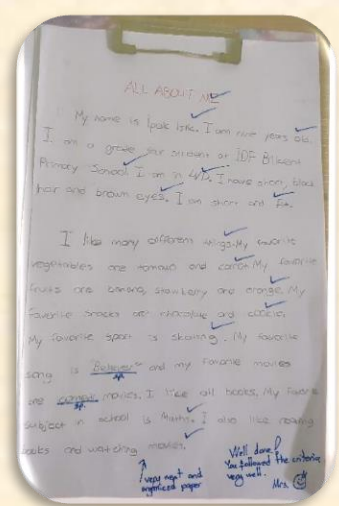 ALL ABOUT ME
My name is Ipek İstik. I am nine years old.
I am a grade four student at IDF Bilkent
Primary School. I am in 4/D. I have short, black
hair and brown eyes. I am short and fit.
I like many different things. My favorite
vegetables are tomato and carrot. My favorite
fruits are banana, strawberry and orange. My
favorite snacks are chocolate and cookie.
My favorite sport is skating. My favorite
song is "Believer" and my favorite movies
are comedy movies. I like all books. My favorite
subject in school is Maths. I also like reading
books and watching movies.
very neat and
organized paper
Well done!
You followed the criteria
very well.
Mrs.